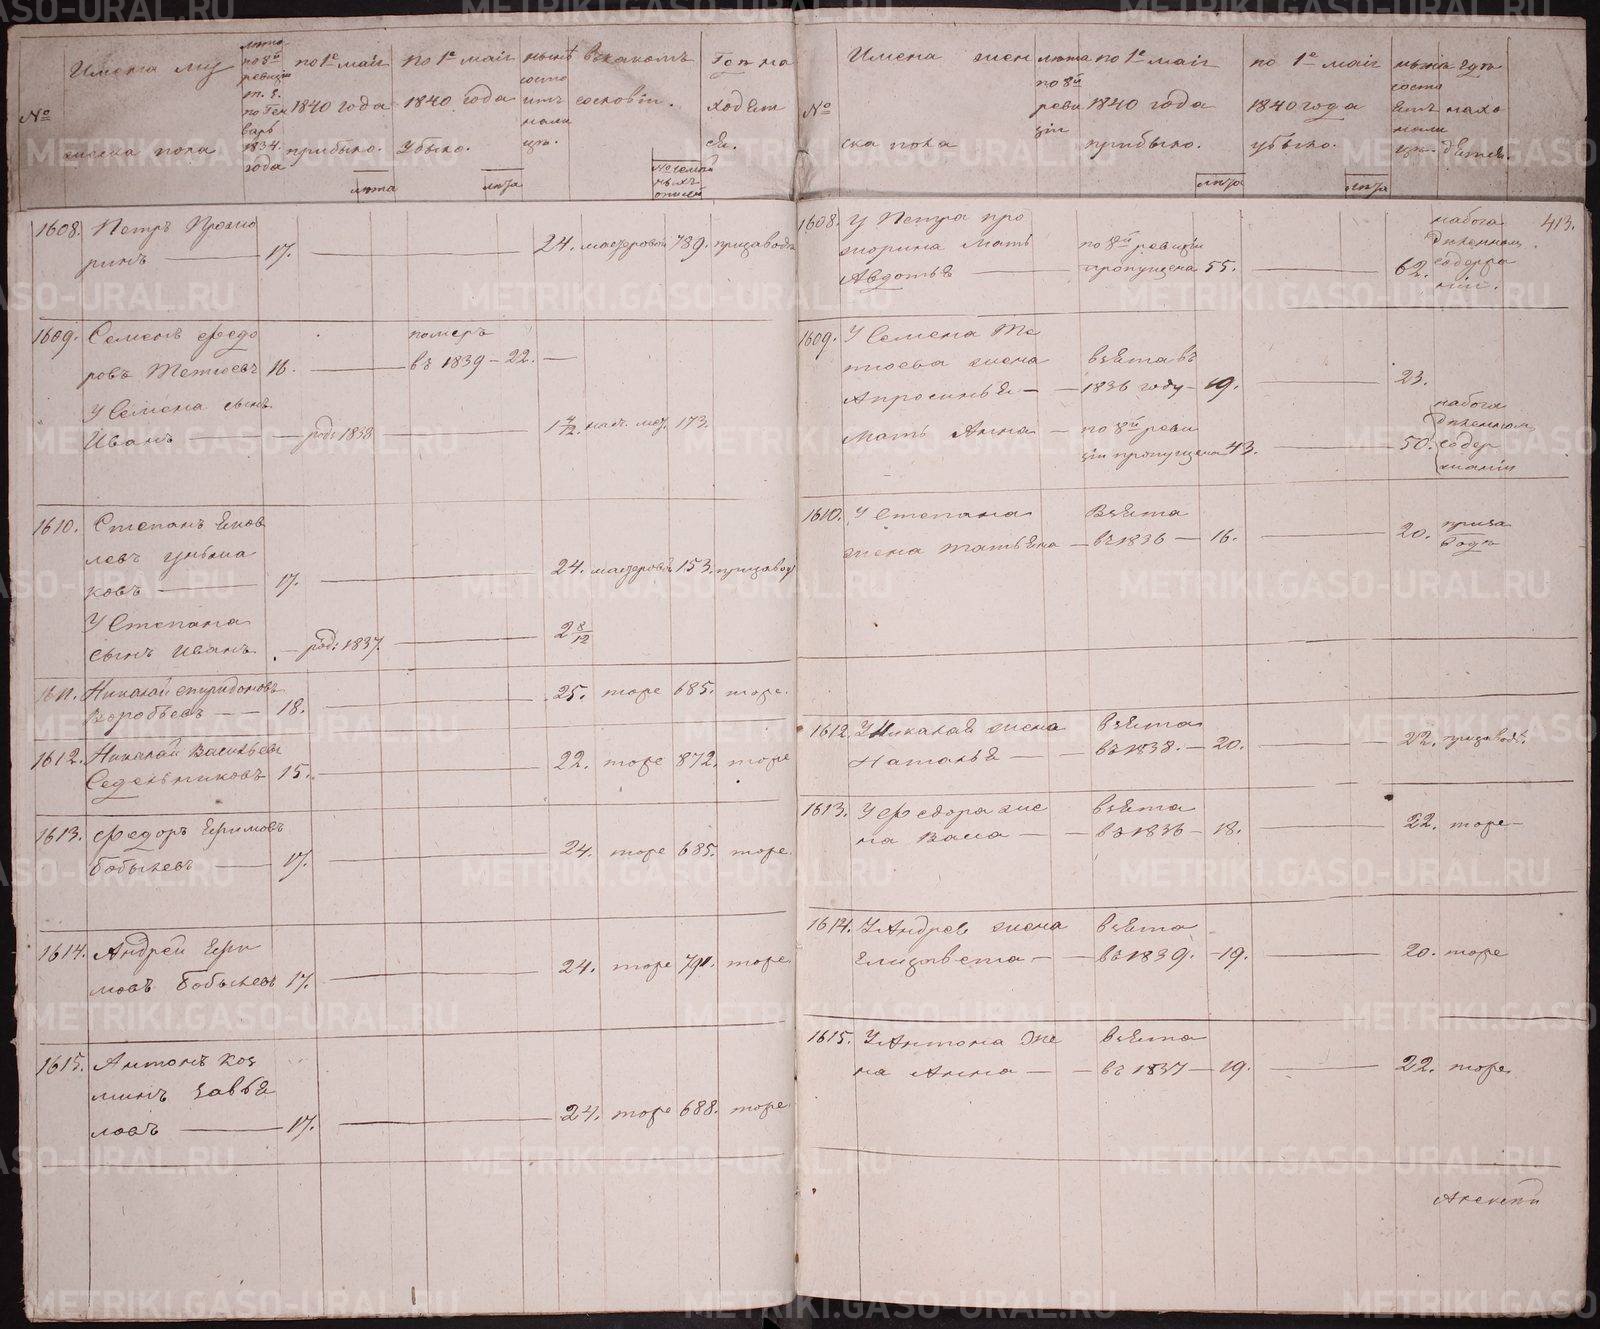 №
Имена му
жеска пола
лета
по 8й
ревизии
т. е.
по Ген
варь
1834.
года
по 1е маія
1840 года
прибыло.
лета
по 1е маія
1840 года
убыло.
лета
ныне
состо
итъ
нали
цо.
в какомъ
сословіи.
№ семей
ныхъ
описей
Где на
ходит
ся.
1608. Петръ Прохо
ринъ 17. 24. мастеровой 789. при заводе
1609. Семенъ Федо
ровъ Тетюевъ 16.
померъ
въ 1839 - 22. —
У Семена сынъ
Иванъ — род: 1838 — 1 4/12. 173.
1610. Степанъ Яков
левъ
ковъ — 17. — 24. мастеровой 153. при заводе
У Степана
сынъ Иванъ — род: 1837 — 2 8/12
1611. Николай Спиридоновъ
Воробьевъ — 18. — 25. тоже 685. тоже.
1612. Николай Васильевъ
Седельниковъ 15. — 22. тоже 872. тоже
1613. Федоръ Ефимовъ
Бобылевъ — 17. — 24. тоже 685. тоже.
1614. Андрей Ефи
мовъ Бобылевъ 17. — 24. тоже 791. тоже.
1615. Антонъ Коз
минъ Завья
ловъ — 17. — 24. тоже 688. тоже.
№
Имена жен
ска пола
лета
по 8й
реви
зіи
по 1е маія
1840 года
прибыло.
лета
по 1е маія
1840 года
убыло.
лета
ныне
состо
итъ
нали
цо.
где
нахо
дится.
413.
1608. У Петра Про
хорина мать
Авдотья —
по 8й ревизіи
пропущена 55. — 62.
на бога
деленном
содержа
ніи.
1609. У Семена Те
тюева жена
Апросинья —
взята въ
1836 году - 19. — 23.
мать Анна —
по 8й реви
зіи пропущена 43. — 50.
на бога
деленном
содер
жаніи
1610. У Степана
жена Татьяна —
Взята
въ 1836 — 16. — 20. при за
воде
1612. У Николая жена
Наталья —
взята
въ 1838. — 20. — 22. при заводе.
1613. У Федора же
на Васа —
взята
въ 1836 — 18. — 22. тоже —
1614. У Андрея жена
Елизавета —
взята
въ 1839. - 19. — 20. тоже
1615. У Антона же
на Анна —
взята
въ 1837 — 19. — 22. тоже
METRIKI.GASO-URAL.RU